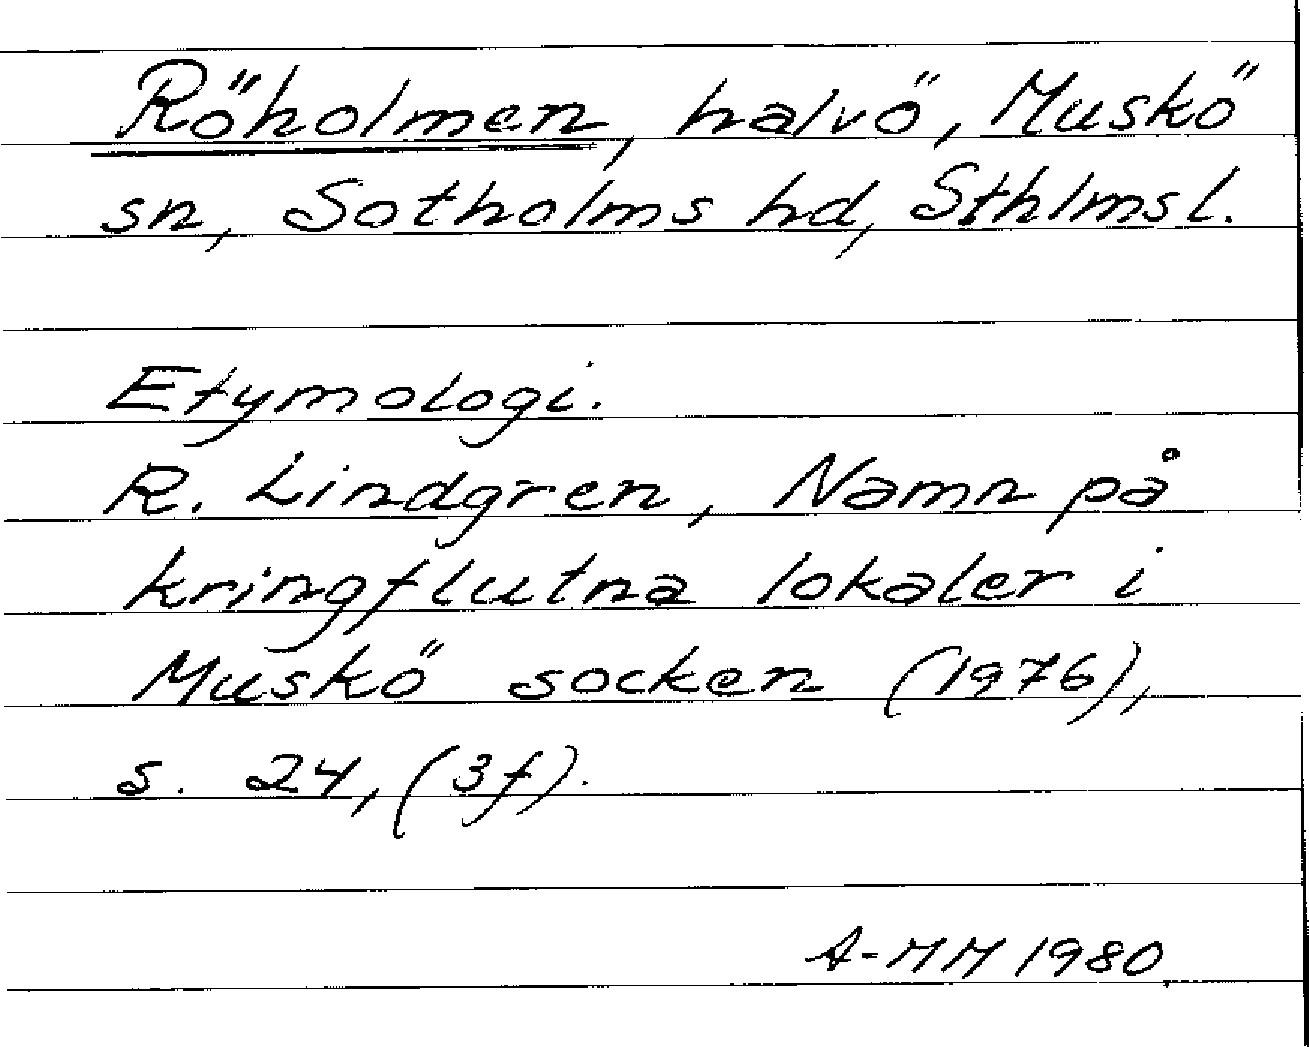 Röholmen, halvö, Muskö
sn, Sotholms hd, Sthlms l.
Etymologi.
R. Lindgren, Namn på
kringflutna lokaler i
Muskö socken (1976),
s. 24, (3f).
A-MM 1980